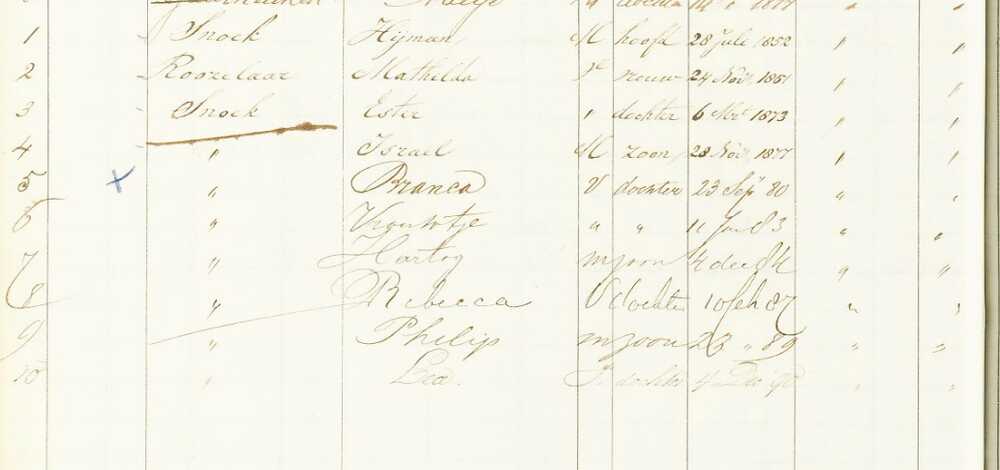 1 Snoek Hijman M hoofd 28 Juli 1852 " "
2 Roozelaar Mathilda V vrouw 24 Nov. 1851 " "
3 Snoek Ester " dochter 6 Mrt 1873 " "
4 " Israel M zoon 28 Nov. 1877 " "
5 " Branca V dochter 23 Sep 80 " "
6 " Vrouwtje " " 11 Jan 83 " "
7 " Hartog m zoon 4 dec 84 " "
8 " Rebecca V dochter 10 feb 87 " "
9 " Philip m zoon 23 " 89 " "
10 " Lea. V. dochter 4 Dec 90 " "